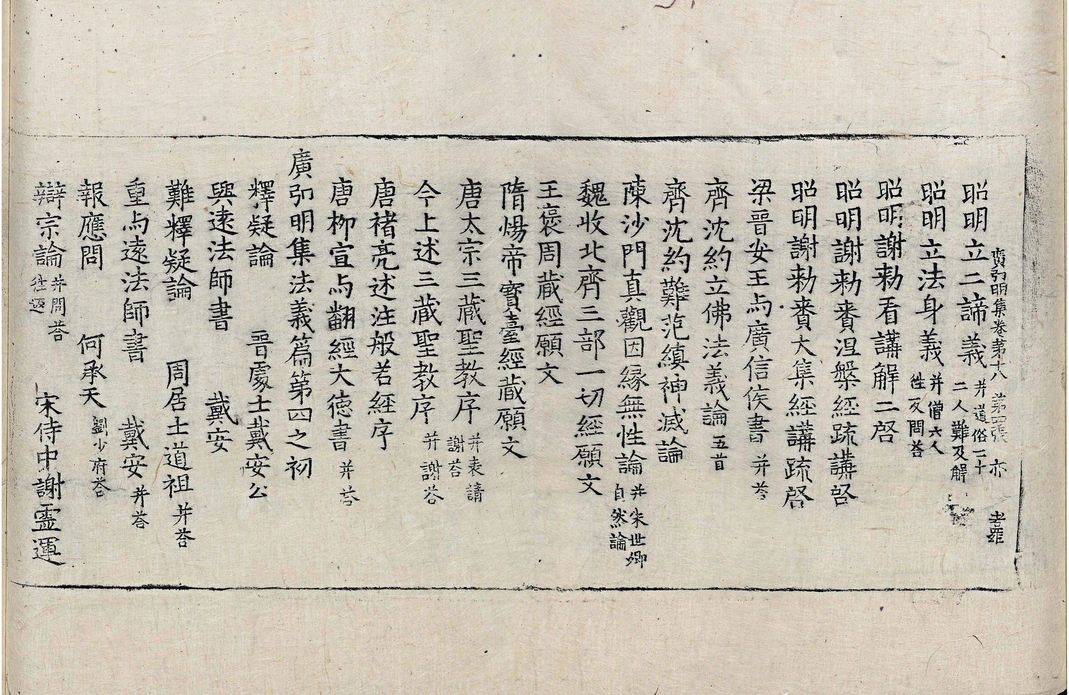 廣弘明集卷第十八 第四張 亦
昭明立二諦義 并道俗二十二人難及解
昭明立法身義 并僧六人往反問荅
昭明謝勑看講解二啓
昭明謝勑賚涅槃經疏講啓
昭明謝勑賚大集經講疏啓
梁晉安王与廣信侯書 并荅
齊沈約立佛法義論 五首
齊沈約難范縝神滅論
陳沙門真觀因緣無性論 并朱世卿自然論
魏收北齊三部一切經願文
王褒周藏經願文
隋煬帝寶臺經藏願文
唐太宗三藏聖教序 并表請謝荅
今上述三藏聖教序 并謝荅
唐褚亮述注般若經序
唐柳宣与翻經大德書 并荅
廣弘明集法義篇第四之初
釋疑論 晉處士戴安公
與遠法師書 戴安
難釋疑論 周居士道祖 并荅
重与遠法師書 戴安 并荅
報應問 何承天 劉少府荅
辯宗論 并問荅往返 宋侍中謝靈運